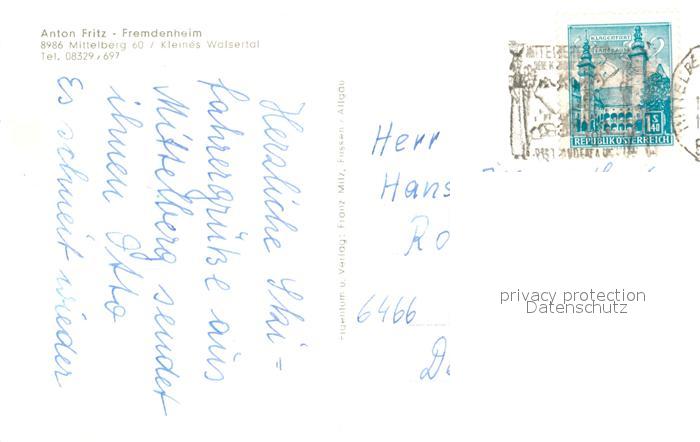 Anton Fritz - Fremdenheim
8986 Mittelberg 60 / Kleines Walsertal
Tel. 08329/697
Herzliche Ski-
fahrergrüße aus
Mittelberg sendet
ihnen Otto
Es schneit wieder
Eigentum u. Verlag: Franz Milz, Füssen - Allgäu
Herr
Hans
Ro
6466
KLAGENFURT
S 1.40
REPUBLIK ÖSTERREICH
privacy protection
Datenschutz